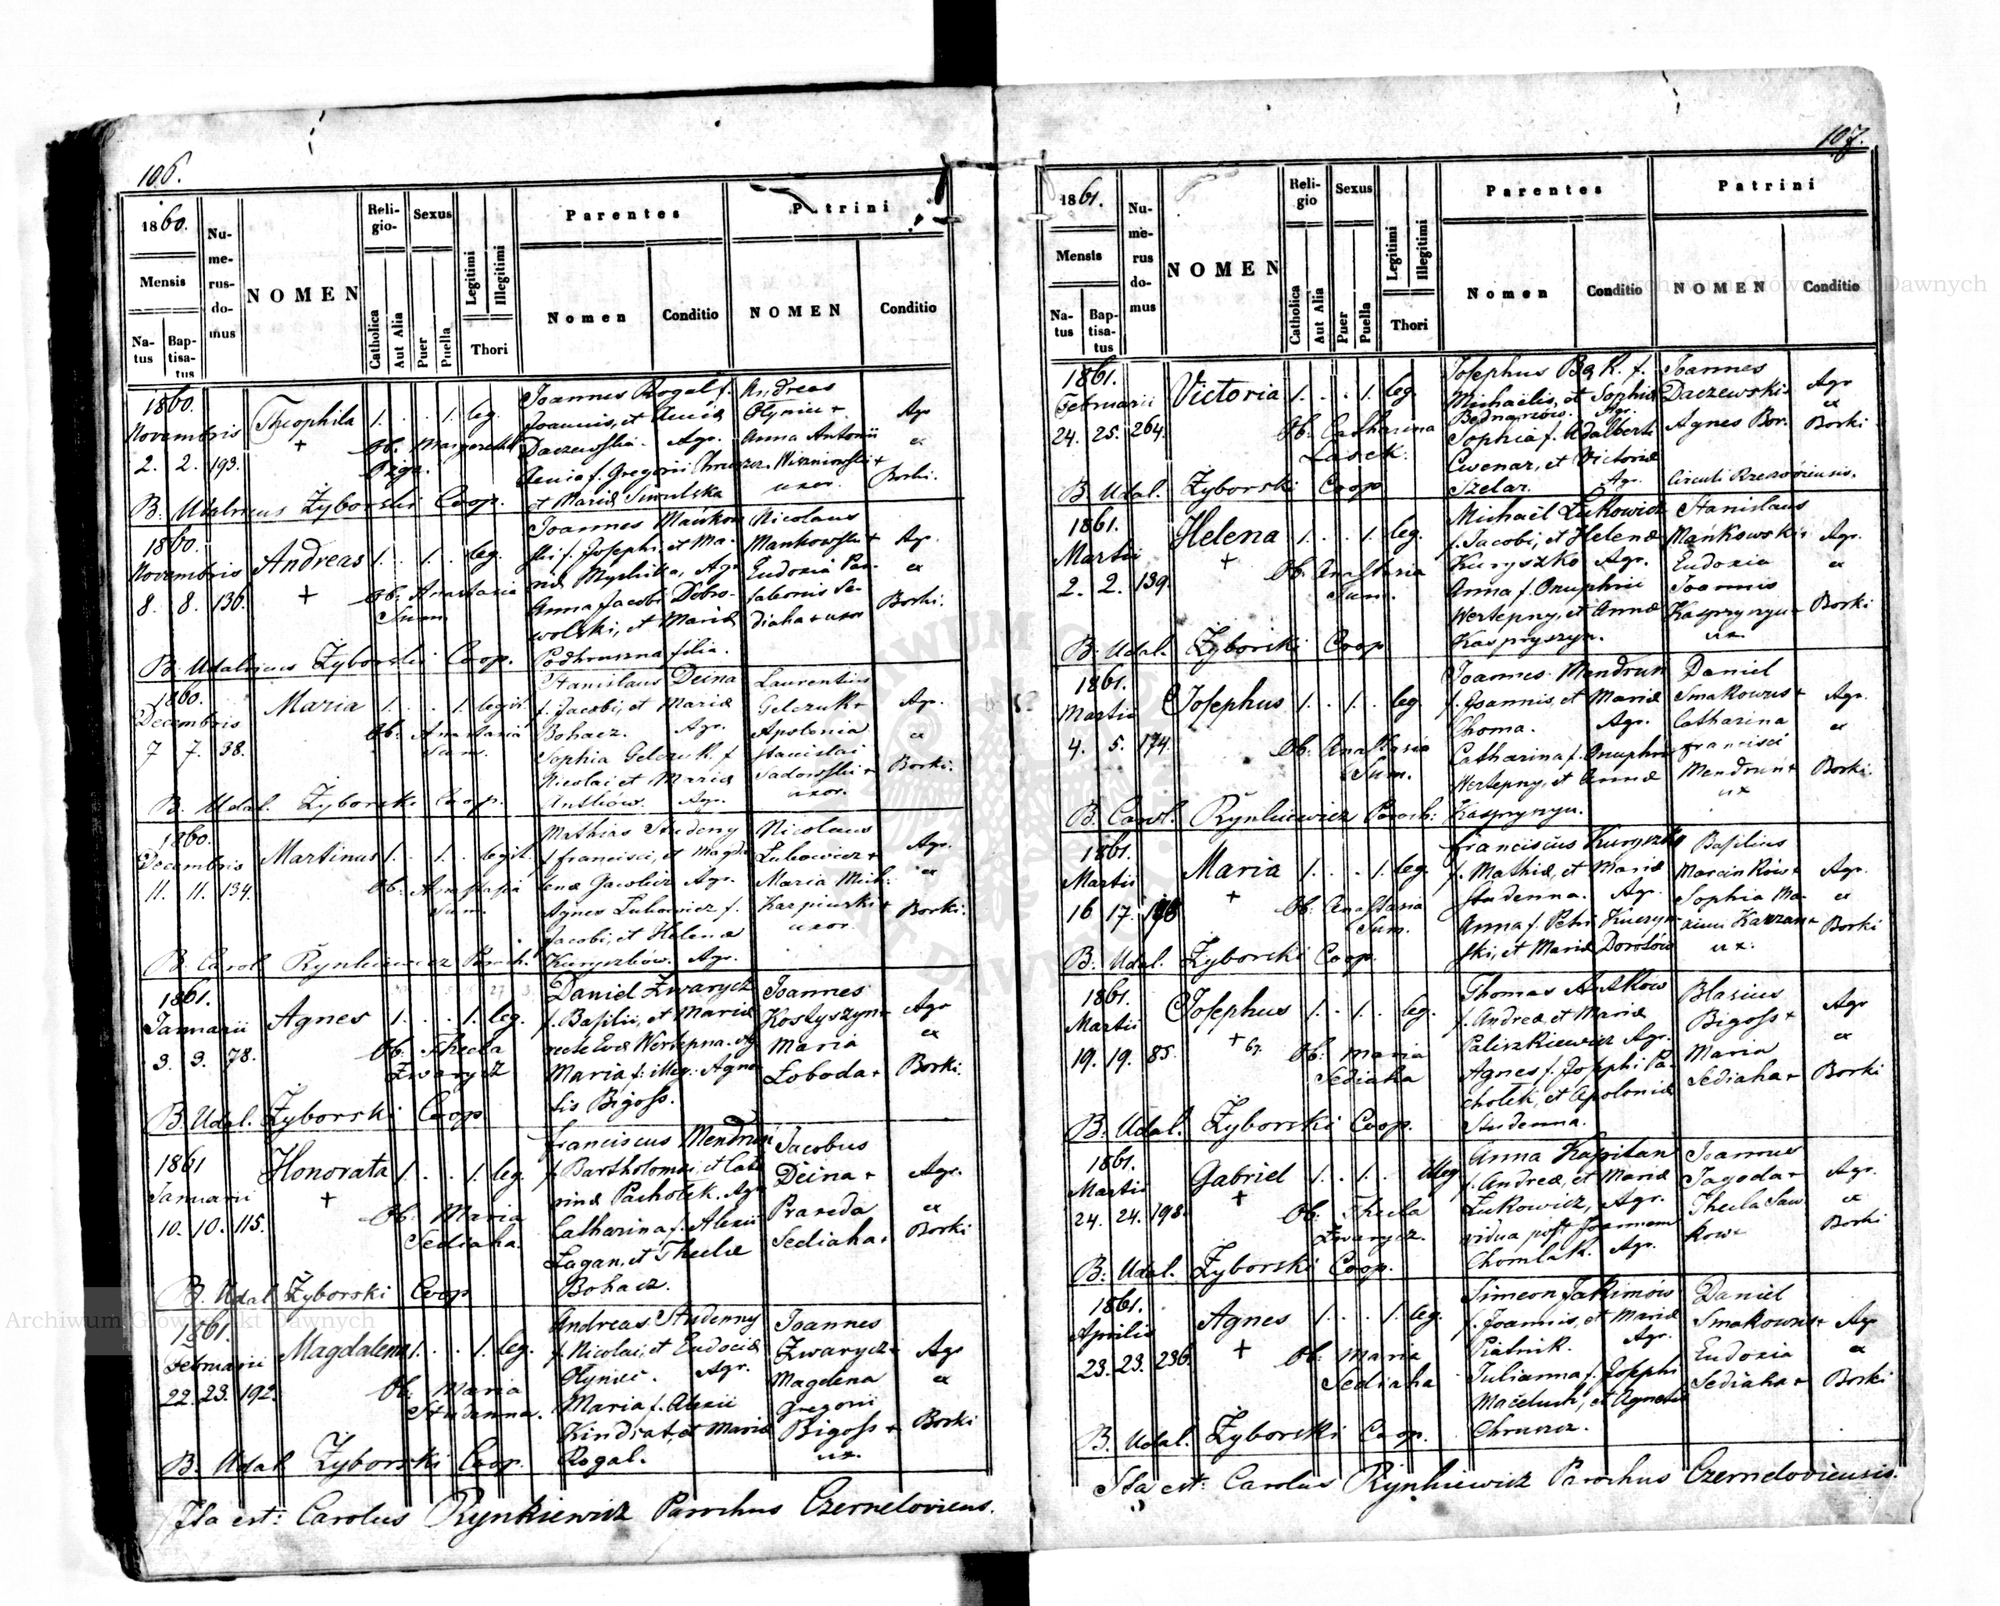 106.
1860.
Mensis
Natus
Baptisatus
Numerus domus
NOMEN
Religio
Catholica
Aut Alia
Sexus
Puer
Puella
Legitimi
Illegitimi
Thori
Parentes
Nomen
Conditio
Patrini
NOMEN
Conditio
1860.
Novembris
2. 2. 193.
Theophila 1. . . 1. leg.
+
Ob. Margaretha
Joannes Rogal f.
Joannis, et
Daczewska. Agr.
f. Gregorii
et Mariæ
Andreas
Olyniu +
Anna Antonii
Wiszniowski +
uxor.
Agr
ex
Borki.
B. Udalricus Żyborski Coop.
1860.
Novembris
8. 8. 136.
Andreas 1. . 1. . leg.
+
Ob. Anastasia
Sum.
Joannes Mańkow
ski f. Josephi, et Ma-
riæ Agr
Anna Jacobi Dobro-
wolski, et Mariæ
Podhruszna filia.
Nicolaus
Mankowski +
Eudoxia
Se-
diaha + uxor
Agr.
ex
Borki.
B. Udalricus Żyborski Coop.
1860.
Decembris
7 7. 38.
Maria 1. . . 1. legit.
Ob. Anastasia
Sum.
Stanislaus Deina
f. Jacobi, et Mariæ
Bohacz. Agr.
Sophia Gelczuk f.
Nicolai et Mariæ
Antków. Agr.
Laurentius
Gelczuk +
Apolonia
Stanislai
Sadowski +
uxor.
Agr.
ex
Borki.
B. Udal. Żyborski Coop.
1860.
Decembris
11. 11. 134.
Martinus 1. . 1. . legit.
Ob. Anastasia
Sum.
Mathias Studeny
f. Francisci, et Magda
lenæ Agr.
Agnes Lukowicz f.
Jacobi, et Helenæ
Kuryszków. Agr.
Nicolaus
Lukowicz +
Maria Mich.
Karpinski +
uxor.
Agr.
ex
Borki.
B. Carol. Rynkiewicz Paroch.
1861.
Januarii
3. 3. 78.
Agnes 1. . . 1. leg.
Ob. Thecla
Zwarycz
Daniel Zwarycz
f. Basilii, et Mariæ
recte Evæ Wertepna.
Maria f. illeg. Agne-
tis Bigoss.
Joannes
Kostyszyn +
Maria
Łoboda +
Agr
ex
Borki.
B. Udal. Żyborski Coop
1861
Januarii
10. 10. 115.
Honorata 1. . . 1. leg.
+
Ob. Maria
Sediaha.
Franciscus Mendrun
f. Bartholomæi, et Cata
rinæ Pacholek. Agr
Catharina f. Alexii
Łagan, et Theclæ
Bohacz.
Jacobus
Deina +
Praxeda
Sediaha +
Agr.
ex
Borki
B. Udal. Żyborski Coop
1861.
Februarii
22. 23. 192.
Magdalena 1. . . 1. leg.
Ob. Maria
Studenna.
Andreas Studenny
f. Nicolai, et Eudociæ
Agr.
Maria f. Alexii
Kindrat, et Mariæ
Rogal.
Joannes
Zwarycz +
Magdena
Gregorii
Bigoss +
ux.
Agr
ex
Borki
B. Udal. Żyborski Coop.
Ita est: Carolus Rynkiewicz Parochus Czerneloviens.
107.
1861.
Mensis
Natus
Baptisatus
Numerus domus
NOMEN
Religio
Catholica
Aut Alia
Sexus
Puer
Puella
Legitimi
Illegitimi
Thori
Parentes
Nomen
Conditio
Patrini
NOMEN
Conditio
1861.
Februarii
24. 25. 264.
Victoria 1. . . 1. leg.
Ob. Catharina
Lasek.
Josephus Bąk. f.
Michaelis, et Sophiæ
Bednarzów. Agr.
Sophia f. Adalberti
Cwenar, et Victoriæ
Szelar. Agr.
Joannes
Daczewski +
Agnes Bor.
Circuli Rzeszoviensis.
Agr
ex
Borki
B. Udal. Żyborski Coop
1861.
Martii
2. 2. 139.
Helena 1. . . 1. leg.
+
Ob. Anastasia
Sum.
Michaël Lukowicz
f. Jacobi, et Helenæ
Kuryszko Agr.
Anna f. Onuphrii
Wertepny, et Annæ
Kaspryszyn.
Stanislaus
Mańkowski +
Eudoxia
Joannis
Kaspryszyn +
ux.
Agr.
ex
Borki
B. Udal. Żyborski Coop
1861.
Martii
4. 5. 174.
Josephus 1. . 1. . leg.
Ob. Anastasia
Sum.
Joannes Mendrun
f. Joannis, et Mariæ
Choma. Agr.
Catharina f. Onuphrii
Wertepny, et Annæ
Kaspryszyn.
Daniel
Smakowus +
Catharina
Francisci
Mendrun +
ux
Agr.
ex
Borki.
B. Carol. Rynkiewicz Paroch:
1861.
Martii
16 17.
Maria 1. . . 1. leg.
+
Ob. Anastasia
Sum.
Franciscus Kuryszko
f. Mathiæ, et Mariæ
Studenna. Agr.
Anna f. Petri Kuczyn-
ski, et Mariæ Dorotów
Basilius
Marcinków +
Sophia Ma-
ximi +
ux.
Agr.
ex
Borki
B. Udal. Żyborski Coop.
1861.
Martii
19. 19. 85.
Josephus 1. . 1. . leg.
+ 67.
Ob. Maria
Sediaha
Thomas Antków
f. Andreæ et Mariæ
Paliszkiewicz Agr.
Agnes f. Josephi Pa-
cholek, et Apoloniæ
Studenna.
Blasius
Bigoss +
Maria
Sediaha +
Agr
ex
Borki
B. Udal. Żyborski Coop.
1861.
Martii
24. 24. 198.
Gabriel 1. . 1. . illeg.
+
Ob. Thecla
Zwarycz.
Anna Kapitan
f. Andreæ, et Mariæ
Lukowicz, Agr.
vidua post Joannem
Chomlak. Agr.
Joannes
Jagoda +
Thecla Saw-
kow
Agr.
ex
Borki
B. Udal. Żyborski Coop.
1861.
Aprilis
23. 23. 236.
Agnes 1. . . 1. leg.
+
Ob. Maria
Sediaha
Simeon Jakimów
f. Joannis, et Mariæ
Piatnik. Agr.
Julianna f. Josephi
Maceluch, et Agnetis
Chruszcz.
Daniel
Smakowus +
Eudoxia
Sediaha +
Agr
ex
Borki
B. Udal. Żyborski Coop.
Ita est: Carolus Rynkiewicz Parochus Czerneloviensis.
Archiwum Główne Akt Dawnych